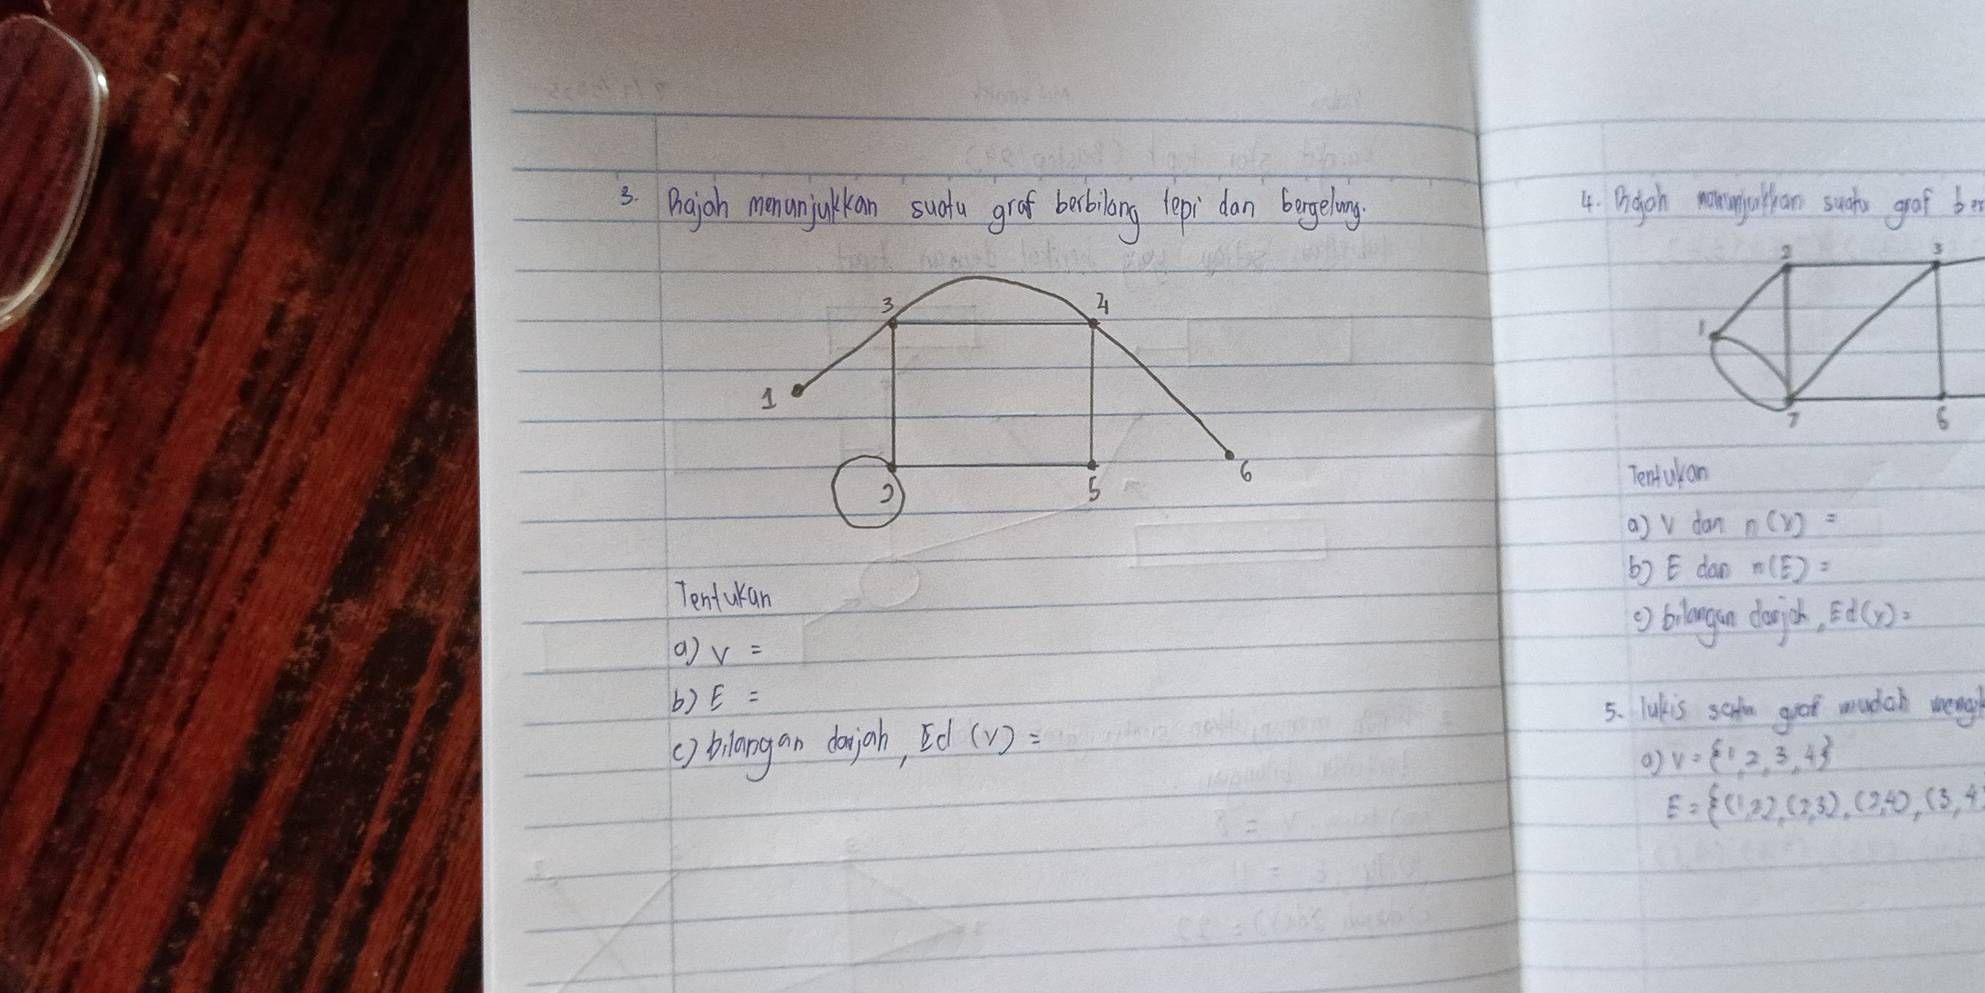 3. Rajah menunjukkan suatu graf berbilang tepi dan bergelung.
3
4
1
2
5
6
Tentukan
a) V =
b) E =
c) bilangan darjah, Σd (V) =
4. Rajah menunjukkan suatu graf ber
2
3
1
7
6
Tentukan
a) V dan n(V) =
b) E dan n(E) =
c) bilangan darjah, Σd(V) =
5. lukis satu graf mudah mengi
a) V = {1, 2, 3, 4}
E = {(1,2), (2,3), (2,4), (3,4